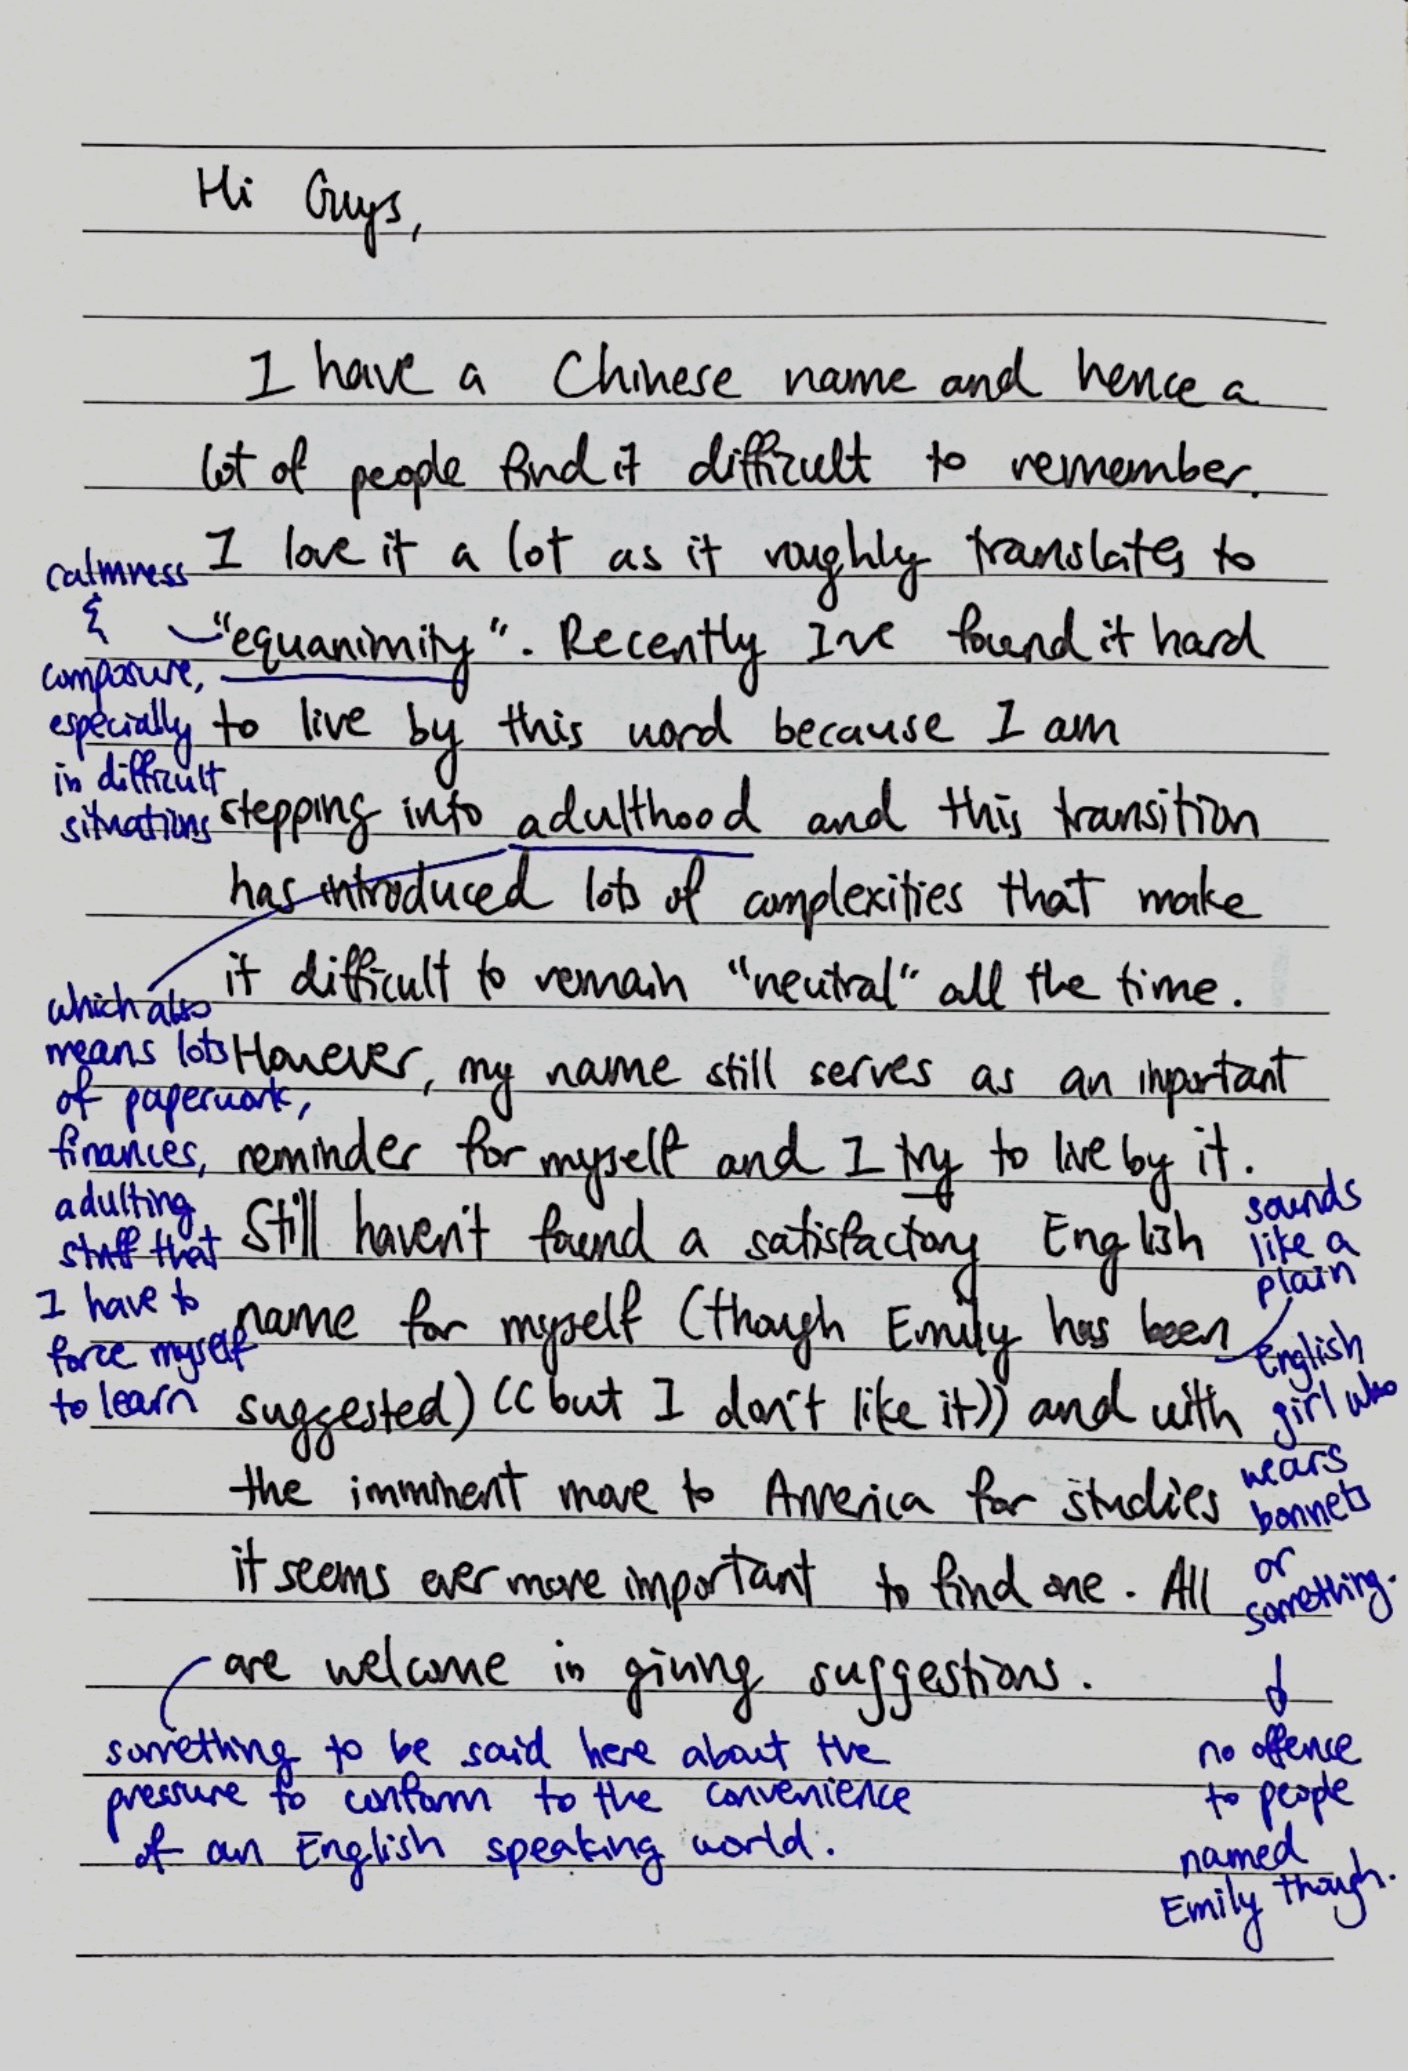 Hi Guys,
I have a Chinese name and hence a
lot of people find it difficult to remember.
I love it a lot as it roughly translates to
"equanimity". Recently I've found it hard
to live by this word because I am
stepping into adulthood and this transition
has introduced lots of complexities that make
it difficult to remain "neutral" all the time.
However, my name still serves as an important
reminder for myself and I try to live by it.
Still haven't found a satisfactory English
name for myself (though Emily has been
suggested) ((but I don't like it)) and with
the imminent move to America for studies
it seems ever more important to find one. All
are welcome in giving suggestions.
calmness
&
composure,
especially
in difficult
situations
which also
means lots
of paperwork,
finances,
adulting
stuff that
I have to
force myself
to learn
sounds
like a
plain
English
girl who
wears
bonnets
or
something.
no offence
to people
named
Emily though.
something to be said here about the
pressure to conform to the convenience
of an English speaking world.